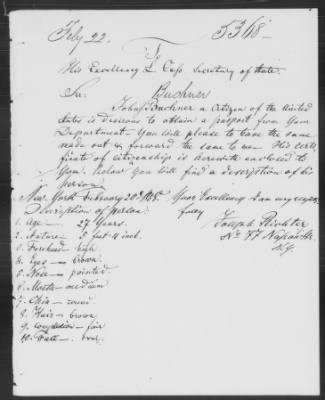 Feby 22.
5368-
To
His Excellency L. Cass Secretary of State.
Sir: Buchner
John Buchner a Citizen of the United
States is desirous to obtain a passport from Your
Department - You will please to have the same
made out & forward the same to me. His certi-
ficate of citizenship is herewith enclosed to
You, below You will find a description of his
person.
New York February 20th Your Excellency I am very respect-
fully
Description of person.
Joseph Richter
No 77 Nassau Str.
N.Y.
1. Age - 27 Years.
2. Stature - 5 feet 4 inch.
3. Forehead high
4. Eyes - brown.
5. Nose - pointed.
6. Mouth - medium
7. Chin - round.
8. Hair - brown
9. Complexion - fair
10. Face - oval.